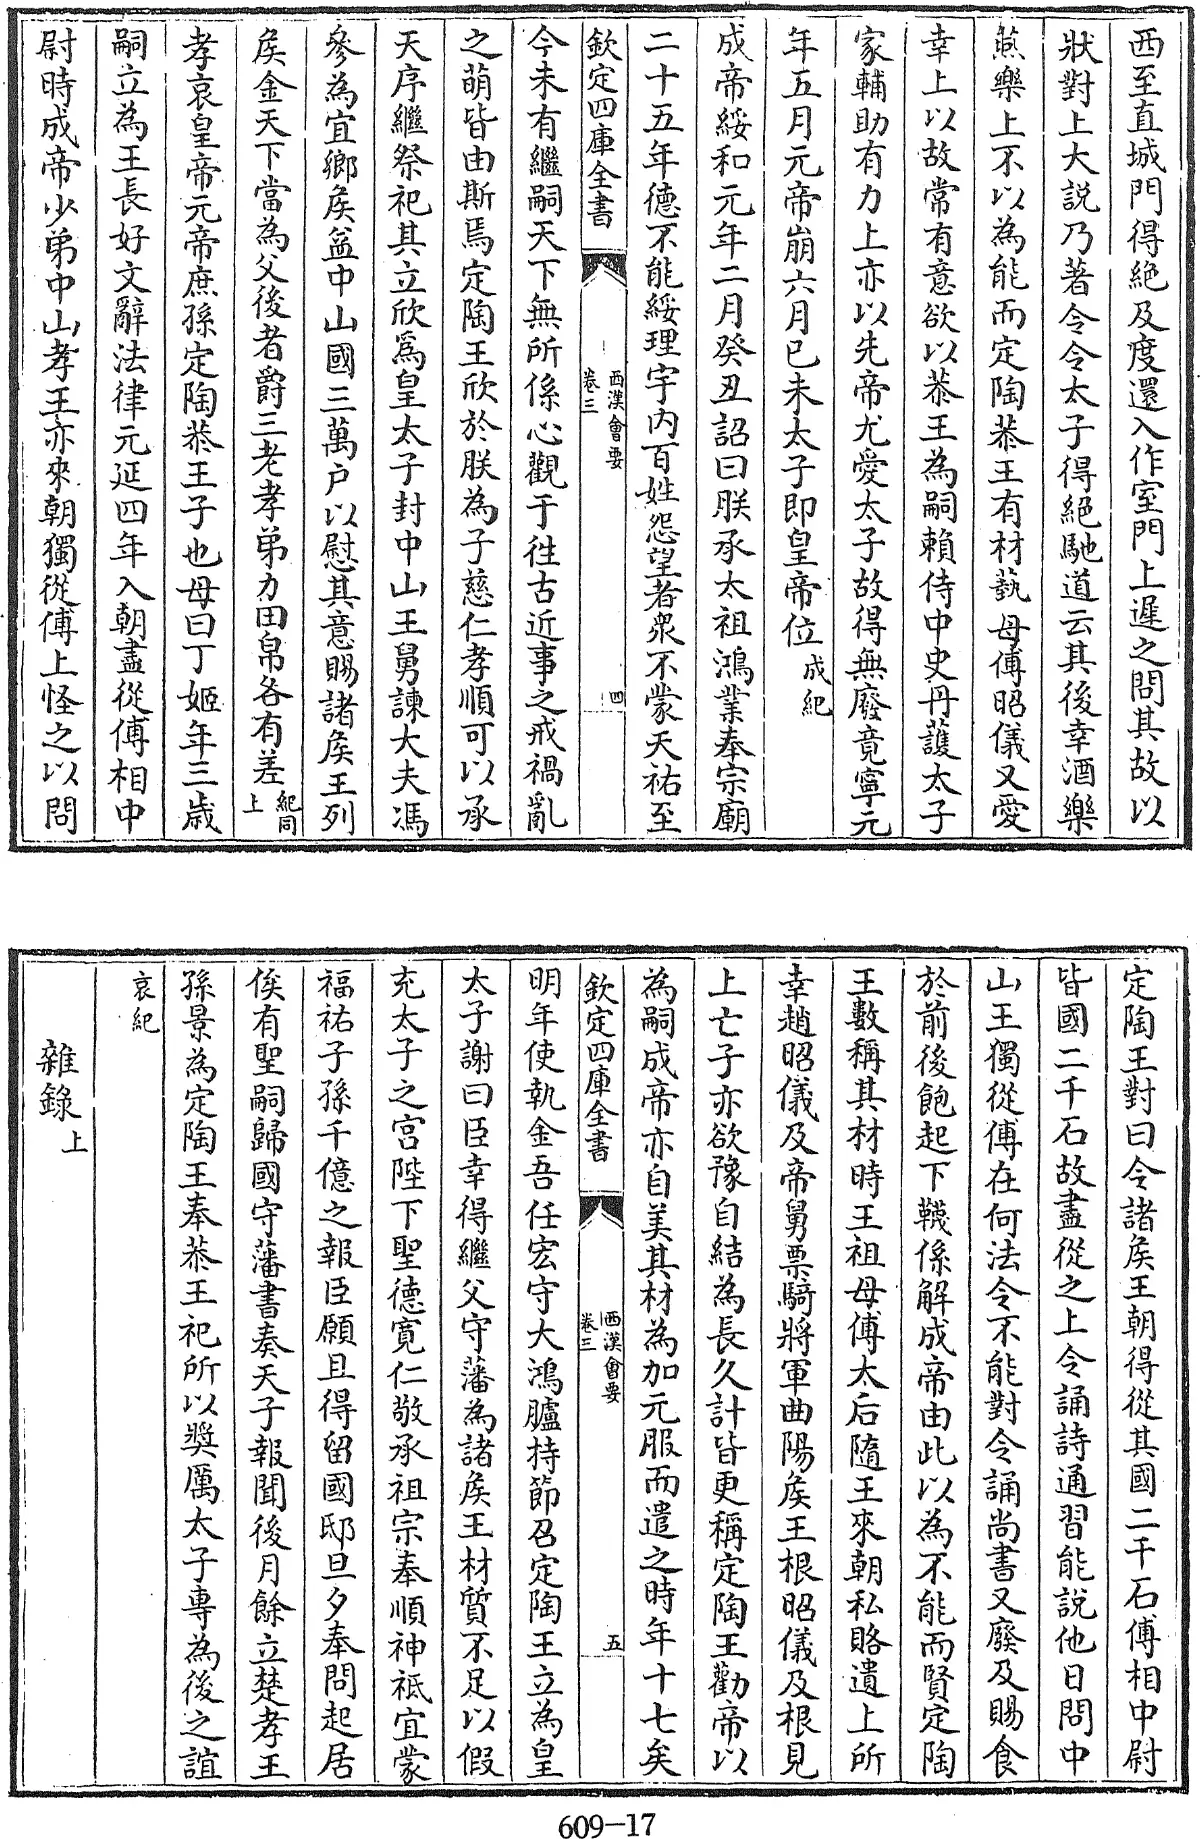 西至直城門得絶及度還入作室門上遲之問其故以
狀對上大説乃著令令太子得絕馳道云其後幸酒樂
燕樂上不以為能而定陶恭王有材藝母傅昭儀又愛
幸上以故常有意欲以恭王為嗣賴侍中史丹護太子
家輔助有力上亦以先帝尤愛太子故得無廢竟寧元
年五月元帝崩六月已未太子即皇帝位成紀
成帝綏和元年二月癸丑詔曰朕承太祖鴻業奉宗廟
二十五年德不能綏理宇内百姓怨望者衆不蒙天祐至
欽定四庫全書
西漢會要
卷三
四
今未有繼嗣天下無所係心觀于徃古近事之戒禍亂
之萌皆由斯焉定陶王欣於朕為子慈仁孝順可以承
天序繼祭祀其立欣爲皇太子封中山王舅諫大夫馮
參為宜鄉矦益中山國三萬户以慰其意賜諸矦王列
矦金天下當為父後者爵三老孝弟力田帛各有差紀同上
孝哀皇帝元帝庶孫定陶恭王子也母曰丁姬年三歳
嗣立為王長好文辭法律元延四年入朝盡從傅相中
尉時成帝少弟中山孝王亦來朝獨從傅上怪之以問
定陶王對曰令諸矦王朝得從其國二千石傅相中尉
皆國二千石故盡從之上令誦詩通習能説他日問中
山王獨從傅在何法令不能對令誦尚書又廢及賜食
於前後飽起下韈係解成帝由此以為不能而賢定陶
王數稱其材時王祖母傅太后隨王來朝私賂遺上所
幸趙昭儀及帝舅票騎將軍曲陽矦王根昭儀及根見
上亡子亦欲豫自結為長久計皆更稱定陶王勸帝以
為嗣成帝亦自美其材為加元服而遣之時年十七矣
欽定四庫全書
西漢會要
卷三
五
明年使執金吾任宏守大鴻臚持節召定陶王立為皇
太子謝曰臣幸得繼父守藩為諸矦王材質不足以假
充太子之宫陛下聖德寛仁敬承祖宗奉順神祗宜蒙
福祐子孫千億之報臣願且得留國邸旦夕奉問起居
俟有聖嗣歸國守藩書奏天子報聞後月餘立楚孝王
孫景為定陶王奉恭王祀所以奨厲太子專為後之誼
哀紀
雜錄上
609-17